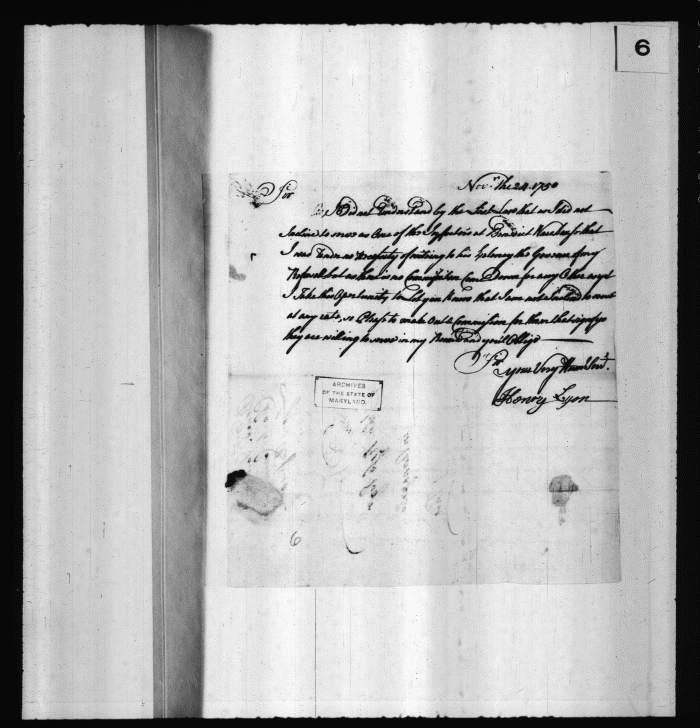 6
Nov.r the 24. 1750
Sir
I did not Understand by the Last Law that as I did not
Incline to serve as One of the Inspectors at Benedict Warehouse that
I was Under a Necessity of writing to his Excelency the Governor of my
Refusal but as there is no Commission Come Down for any Other
I Take this Opertunity to let you know that I am not Inclined to serve
at any rate, so Please to make Out a Commission for them that
they are willing to serve in my Room and you'll Oblige
Sir
your Very Hum Serv.t
Henry Lyon
ARCHIVES
OF THE STATE OF
MARYLAND.
6